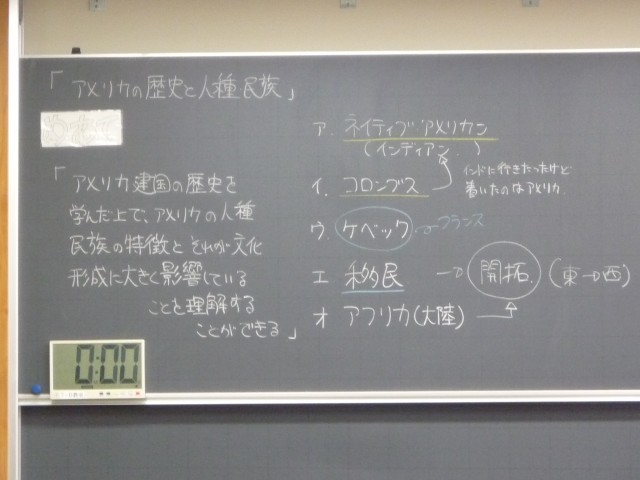 「アメリカの歴史と人種・民族」
「アメリカ建国の歴史を
学んだ上で、アメリカの人種
民族の特徴と それが 文化
形成に大きく影響している
ことを理解する
ことができる」
0:00
ア. ネイティブ アメリカン
(インディアン)
イ. コロンブス
インドに行きたったけど
着いたのはアメリカ
ウ. ケベック → フランス
エ 移民 → 開拓. (東→西)
オ アフリカ(大陸)